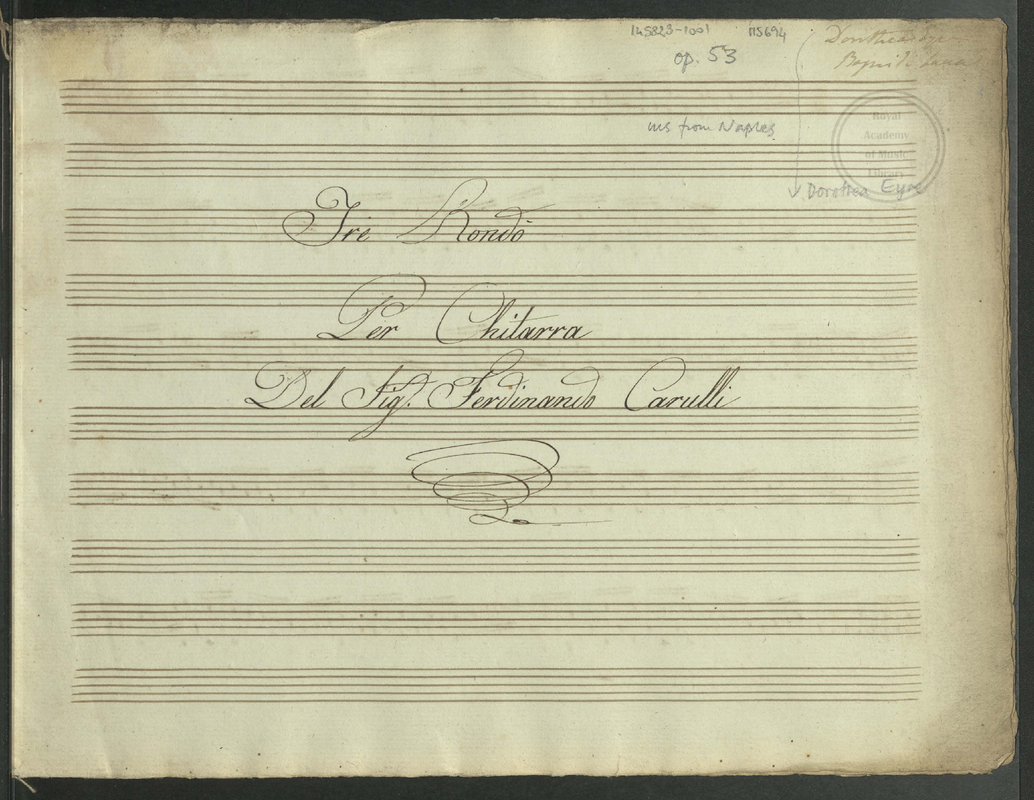 145823-1001 MS694
op. 53
ms from Naples
Royal
Academy
of Music
Library
Dorothea Eyre
Tre Rondò
Per Chitarra
Del Sig.r Ferdinando Carulli